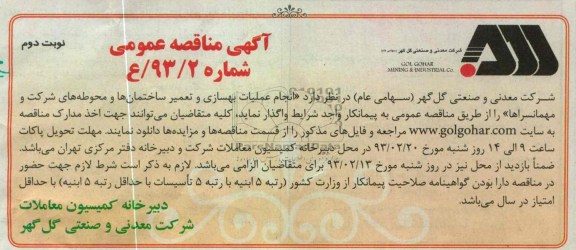 نوبت دوم
آگهی مناقصه عمومی
شماره ۹۳/۲/ع
شرکت معدنی و صنعتی گل گهر
GOL GOHAR
MINING & INDUSTRIAL Co
شرکت معدنی و صنعتی گل‌گهر (سهامی عام) در نظر دارد «انجام عملیات بهسازی و تعمیر ساختمان‌ها و محوطه‌های شرکت و
مهمانسراها» را از طریق مناقصه عمومی به پیمانکار واجد شرایط واگذار نماید، کلیه متقاضیان می‌توانند جهت اخذ مدارک مناقصه
به سایت www.golgohar.com مراجعه و فایل‌های مذکور را از قسمت مناقصه‌ها و مزایده‌ها دانلود نمایند. مهلت تحویل پاکات
ساعت ۹ الی ۱۴ روز شنبه مورخ ۹۳/۰۲/۲۰ در محل دبیرخانه کمیسیون معاملات شرکت و دبیرخانه دفتر مرکزی تهران می‌باشد.
ضمناً بازدید از محل نیز در روز شنبه مورخ ۹۳/۰۲/۱۳ برای متقاضیان الزامی می‌باشد. لازم به ذکر است شرط لازم جهت حضور
در مناقصه دارا بودن گواهینامه صلاحیت پیمانکار از وزارت کشور (رتبه ۵ ابنیه با رتبه ۵ تأسیسات با حداقل رتبه ۵ ابنیه) با حداقل
امتیاز در سال می‌باشد.
دبیرخانه کمیسیون معاملات
شرکت معدنی و صنعتی گل گهر